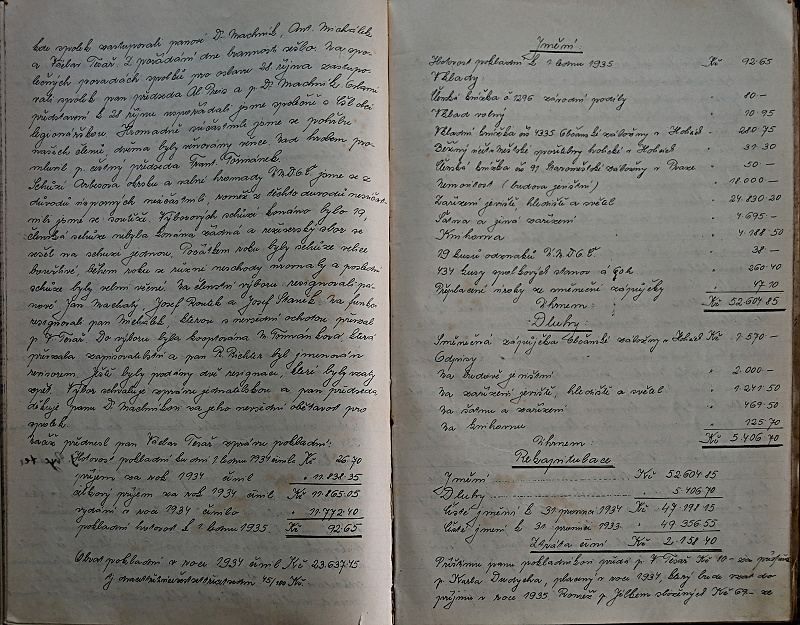 kde spolek zastupovali pánové Dr Machník, Ant. Michálek
a Václav Tesař. Z pořádání dne brannosti sešlo. Na spo-
lečných poradách spolků pro oslavu 28. října zastupo-
vali spolek pan předseda Al. Reis a p. Dr. Machník. Oslavné
představení k 28. říjnu uspořádali jsme společně s
legionářskou. Hromadně súčastnili jsme se pohřbu
našich členů, oběma byly věnovány věnce. Nad hrobem pro-
mluvil p. čestný předseda Frant. Tománek.
Schůzí Arbesova okrsku a valné hromady Ú.M.D.O.Č. jsme se z
důvodů úsporných nesúčastnili, rovněž z těchto důvodů nesúčast-
nili jsme se soutěže. Výborových schůzí konáno bylo 19,
členská schůze nebyla konána žádná a režisérský sbor se
sešel na schůzi jednou. Počátkem roku byly schůze velice
bouřlivé, během roku se různé neshody urovnaly a poslední
schůze byly velmi věcné. Na členství výboru resignovali pá-
nové Jan Machatý, Josef Roulík a Josef Staněk. Na funkci
resignoval pan Melichár, kterou s nevšední ochotou převzal
p. V. Tesař. Do výboru byla kooptována M. Tománková, která
převzala zapisovatelství a pan R. Richter byl jmenován
revisorem. Ještě byly podány dvě resignace, které byly vzaty
zpět. Výbor schvaluje zprávu jednatelskou a pan předseda
děkuje panu Dr. Machníkovi za jeho nevšední obětavost pro
spolek.
Načež přednesl pan Václav Tesař zprávu pokladní:
Hotovost pokladní ku dni 1 lednu 1934 činila Kč 26.70
příjem za rok 1934 činil " 11.838.35
celkový příjem za rok 1934 činil Kč 11.865.05
vydání v roce 1934 činilo " 11.772.40
pokladní hotovost k 1 lednu 1935. Kč 92.65
Obrat pokladní v roce 1934 činil Kč 23.637.45
Jmění
Hotovost pokladní k 1 lednu 1935 Kč 92.65
Vklady:
Členská knížka č 1296 závodní podíly " 10.—
Vklad volný " 10.95
Vkladní knížka čís 4335 Občanské záložny v Hořicích " 210.75
Běžný účet Městské spořitelny " 31.30
Členská knížka čís 91 záložny v Praze " 50.—
Nemovitost (budova jeviště) " 18.000.—
Zařízení jeviště, hlediště a světel " 24.830.20
Šatna a jiná zařízení " 4.695.—
Knihovna " 4.188.50
19 kusů odznaků Ú.M.D.O.Č. " 38.—
434 kusy spolkových stanov á 60h " 260.40
Připlacené úroky ze směnečné zápůjčky " 47.10
Úhrnem: Kč 52.604.85
Dluhy:
Směnečná zápůjčka Občanské záložny v Hořicích Kč 1.570.—
Odpisy
Na budově jeviště " 2.000.—
Na zařízení jeviště, hlediště a světel " 1.241.50
Na šatnu a zařízení " 469.50
Na knihovnu " 125.70
Úhrnem: Kč 5.406.70
Rekapitulace
Jmění Kč 52.604.85
Dluhy " 5.406.70
Čisté jmění k 31 prosinci 1934 Kč 47.198.15
Čisté jmění k 31 prosinci 1933. " 49.356.55
Ztráta činí Kč 2.158.40
Příštímu panu pokladníkovi předá p. V. Tesař Kč 10.— za
p. Karla Dudycha, placený v roce 1934, který bude vzat do
příjmu v roce 1935. Rovněž p. složených Kč 67.— ze